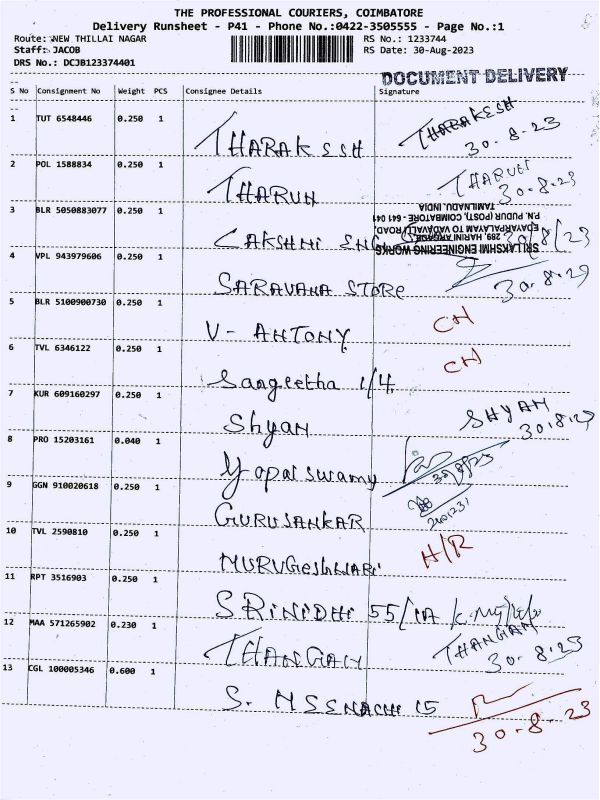 THE PROFESSIONAL COURIERS, COIMBATORE
Delivery Runsheet - P41 - Phone No.:0422-3505555 - Page No.:1
Route: NEW THILLAI NAGAR RS No.: 1233744
Staff: JACOB RS Date: 30-Aug-2023
DRS No.: DCJB123374401
DOCUMENT DELIVERY
S No Consignment No Weight PCS Consignee Details Signature
1 TUT 6548446 0.250 1 THARAKESH THARAKESH
30.8.23
2 POL 1588834 0.250 1 THARUN THARUN
30.8.23
3 BLR 5050883077 0.250 1 LAKSHMI ENG 30/8/23
SRI LAKSHMI ENGINEERING WORKS
289, HARINI
EDAYARPALAYAM TO VADAVALLI ROAD,
P.N. PUDUR (POST), COIMBATORE - 641 041
TAMILNADU, INDIA
4 VPL 943979606 0.250 1 SARAVANA STORE 30.8.23
5 BLR 5100900730 0.250 1 V- ANTONY CN
6 TVL 6346122 0.250 1 Sangeetha 1/4. CN
7 KUR 609160297 0.250 1 Shyam SHYAM
30.8.23
8 PRO 15203161 0.040 1 Gopal swamy 30/8/23
9 GGN 910020618 0.250 1 GURUSANKAR
10 TVL 2590810 0.250 1 MURUGESHWARI H/R
11 RPT 3516903 0.250 1 SRINIDHI 55/1A
12 MAA 571265902 0.230 1 THANGAM THANGAM
30.8.23
13 CGL 100005346 0.600 1 S. MEENACHI 15
30.8.23